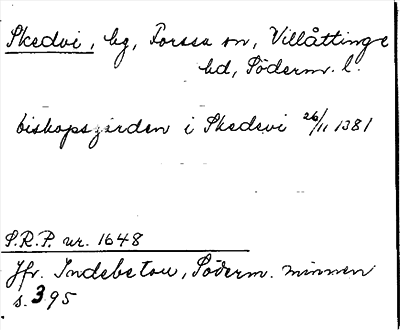 Skedvi, by, Forssa sn, Villåttinge
hd, Söderm. l.
biskopsgården i Skedevi 26/11 1381
S.R.P. nr. 1648
Jfr. Indebetou, Söderm. minnen
s. 395